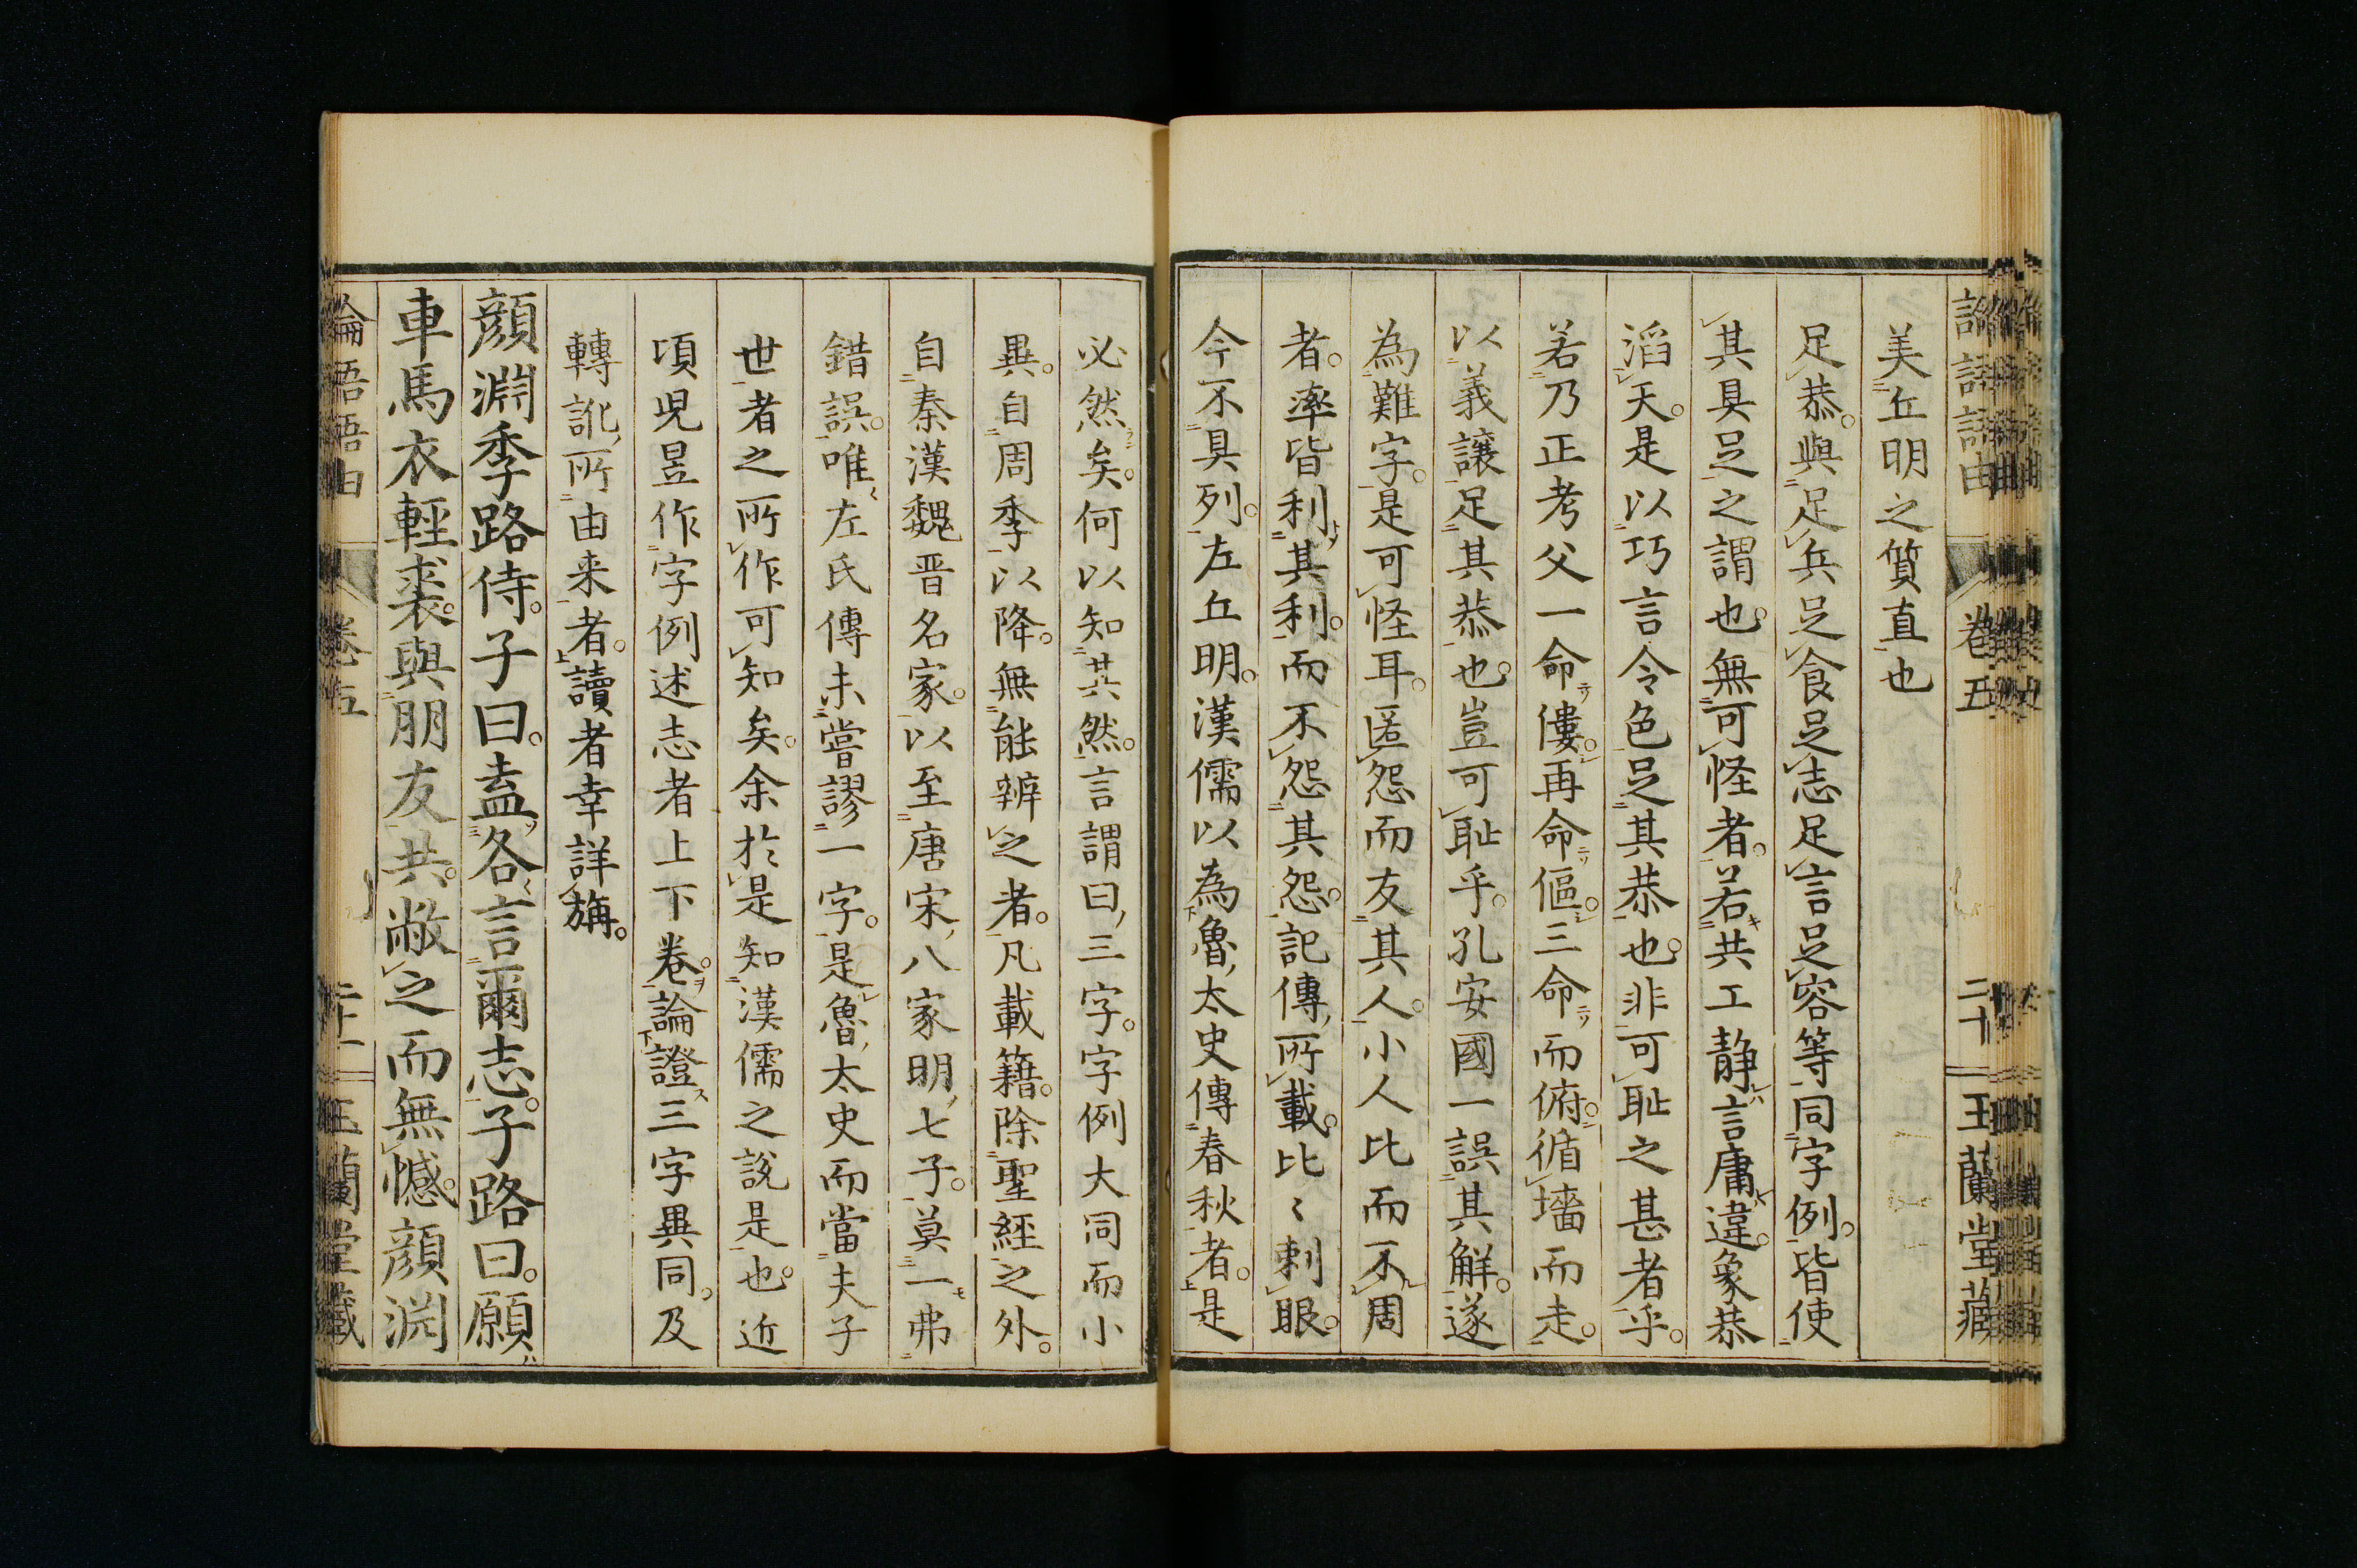 論語語由 卷五 二十 玉蘭堂藏
美丘明之質直也
足恭。與足兵足食足志足言足容等同字例。皆使
其具足之謂也。無可怪者。若共工靜言庸違。象恭
滔天。是以巧言令色足其恭也。非可恥之甚者乎。
若乃正考父一命僂。再命傴。三命而俯。循墻而走。
以義讓足其恭也。豈可恥乎。孔安國一誤其解。遂
為難字。是可怪耳。匿怨而友其人。小人比而不周
者。率皆利其利。而不怨其怨。記傳所載。比〻刺眼。
今不具列。左丘明。漢儒以為魯太史傳春秋者。是
必然矣。何以知其然。言謂曰、三字。字例大同而小
異。自周季以降。無能辨之者。凡載籍。除聖經之外。
自秦漢魏晋名家。以至唐宋八家明七子。莫一弗
錯誤。唯左氏傳未嘗謬一字。是魯太史而當夫子
世者之所作可知矣。余於是知漢儒之說是也。近
頃児昱作字例述志者上下卷。論證三字異同。及
轉訛所由来者。讀者幸詳旃。
顏淵季路侍。子曰。盍各言爾志。子路曰。願
車馬衣輕裘。與朋友共。敝之而無憾。顏淵
論語語由 卷五 二十一 玉蘭堂藏